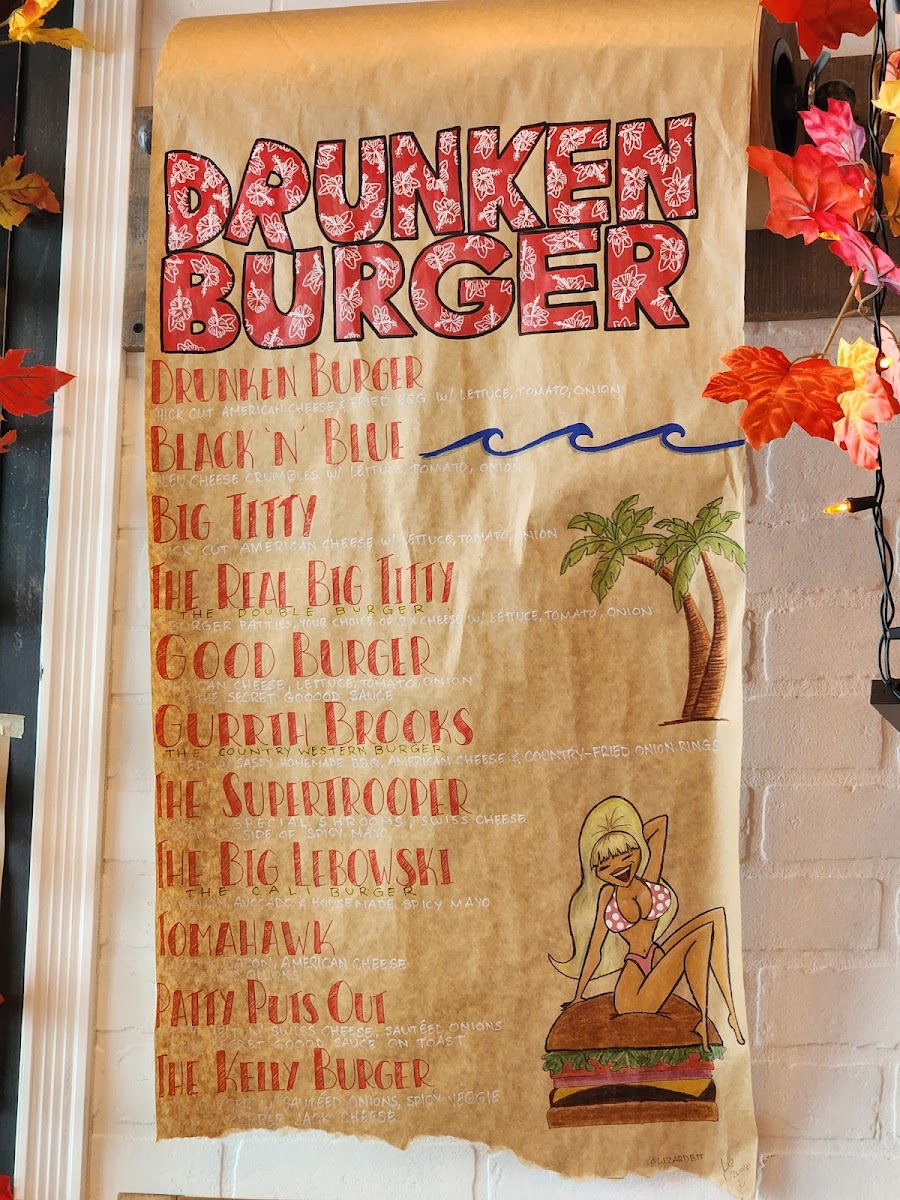 DRUNKEN
BURGER
DRUNKEN BURGER
THICK CUT AMERICAN CHEESE & FRIED EGG W/ LETTUCE, TOMATO, ONION
BLACK 'N' BLUE
BLEU CHEESE CRUMBLES W/ LETTUCE, TOMATO, ONION
BIG TITTY
THICK CUT AMERICAN CHEESE W/ LETTUCE, TOMATO, ONION
THE REAL BIG TITTY
THE DOUBLE BURGER
BURGER PATTIES, YOUR CHOICE OF 2X CHEESE W/ LETTUCE, TOMATO, ONION
GOOD BURGER
CHEESE, LETTUCE, TOMATO, ONION
THE SECRET GOOOOD SAUCE
GURRTH BROOKS
THE COUNTRY WESTERN BURGER
W/ SASSY HOMEMADE BBQ, AMERICAN CHEESE & COUNTRY-FRIED ONION RINGS
THE SUPERTROOPER
SPECIAL SHROOMS, SWISS CHEESE
SIDE OF SPICY MAYO
THE BIG LEBOWSKI
THE CALI BURGER
AVOCADO & HOUSEMADE SPICY MAYO
TOMAHAWK
AMERICAN CHEESE
ONIONS
PATTY PUTS OUT
W/ SWISS CHEESE, SAUTÉED ONIONS
SECRET GOOOD SAUCE ON TOAST
THE KELLY BURGER
W/ SAUTÉED ONIONS, SPICY VEGGIE
JACK CHEESE
@LIZARDBTT